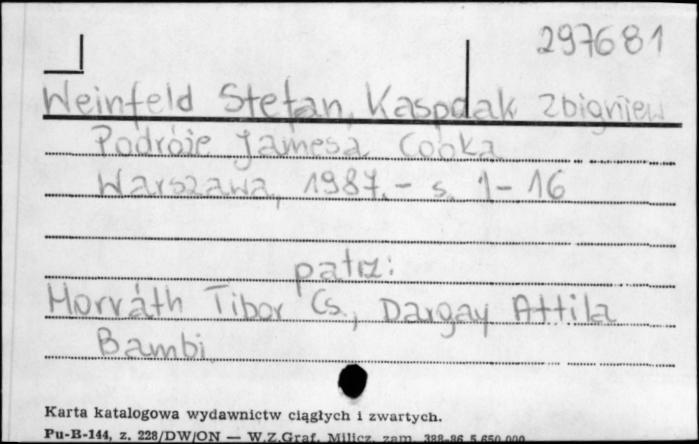 297681
Weinfeld Stefan, Kasprzak Zbigniew
Podróże Jamesa Cooka
Warszawa, 1987. - s. 1-16
patrz:
Horváth Tibor Cs., Dargay Attila
Bambi
Karta katalogowa wydawnictw ciągłych i zwartych.
Pu-B-144, z. 228/DW/ON — W.Z.Graf. Milicz, zam. 388-86 5.650.000